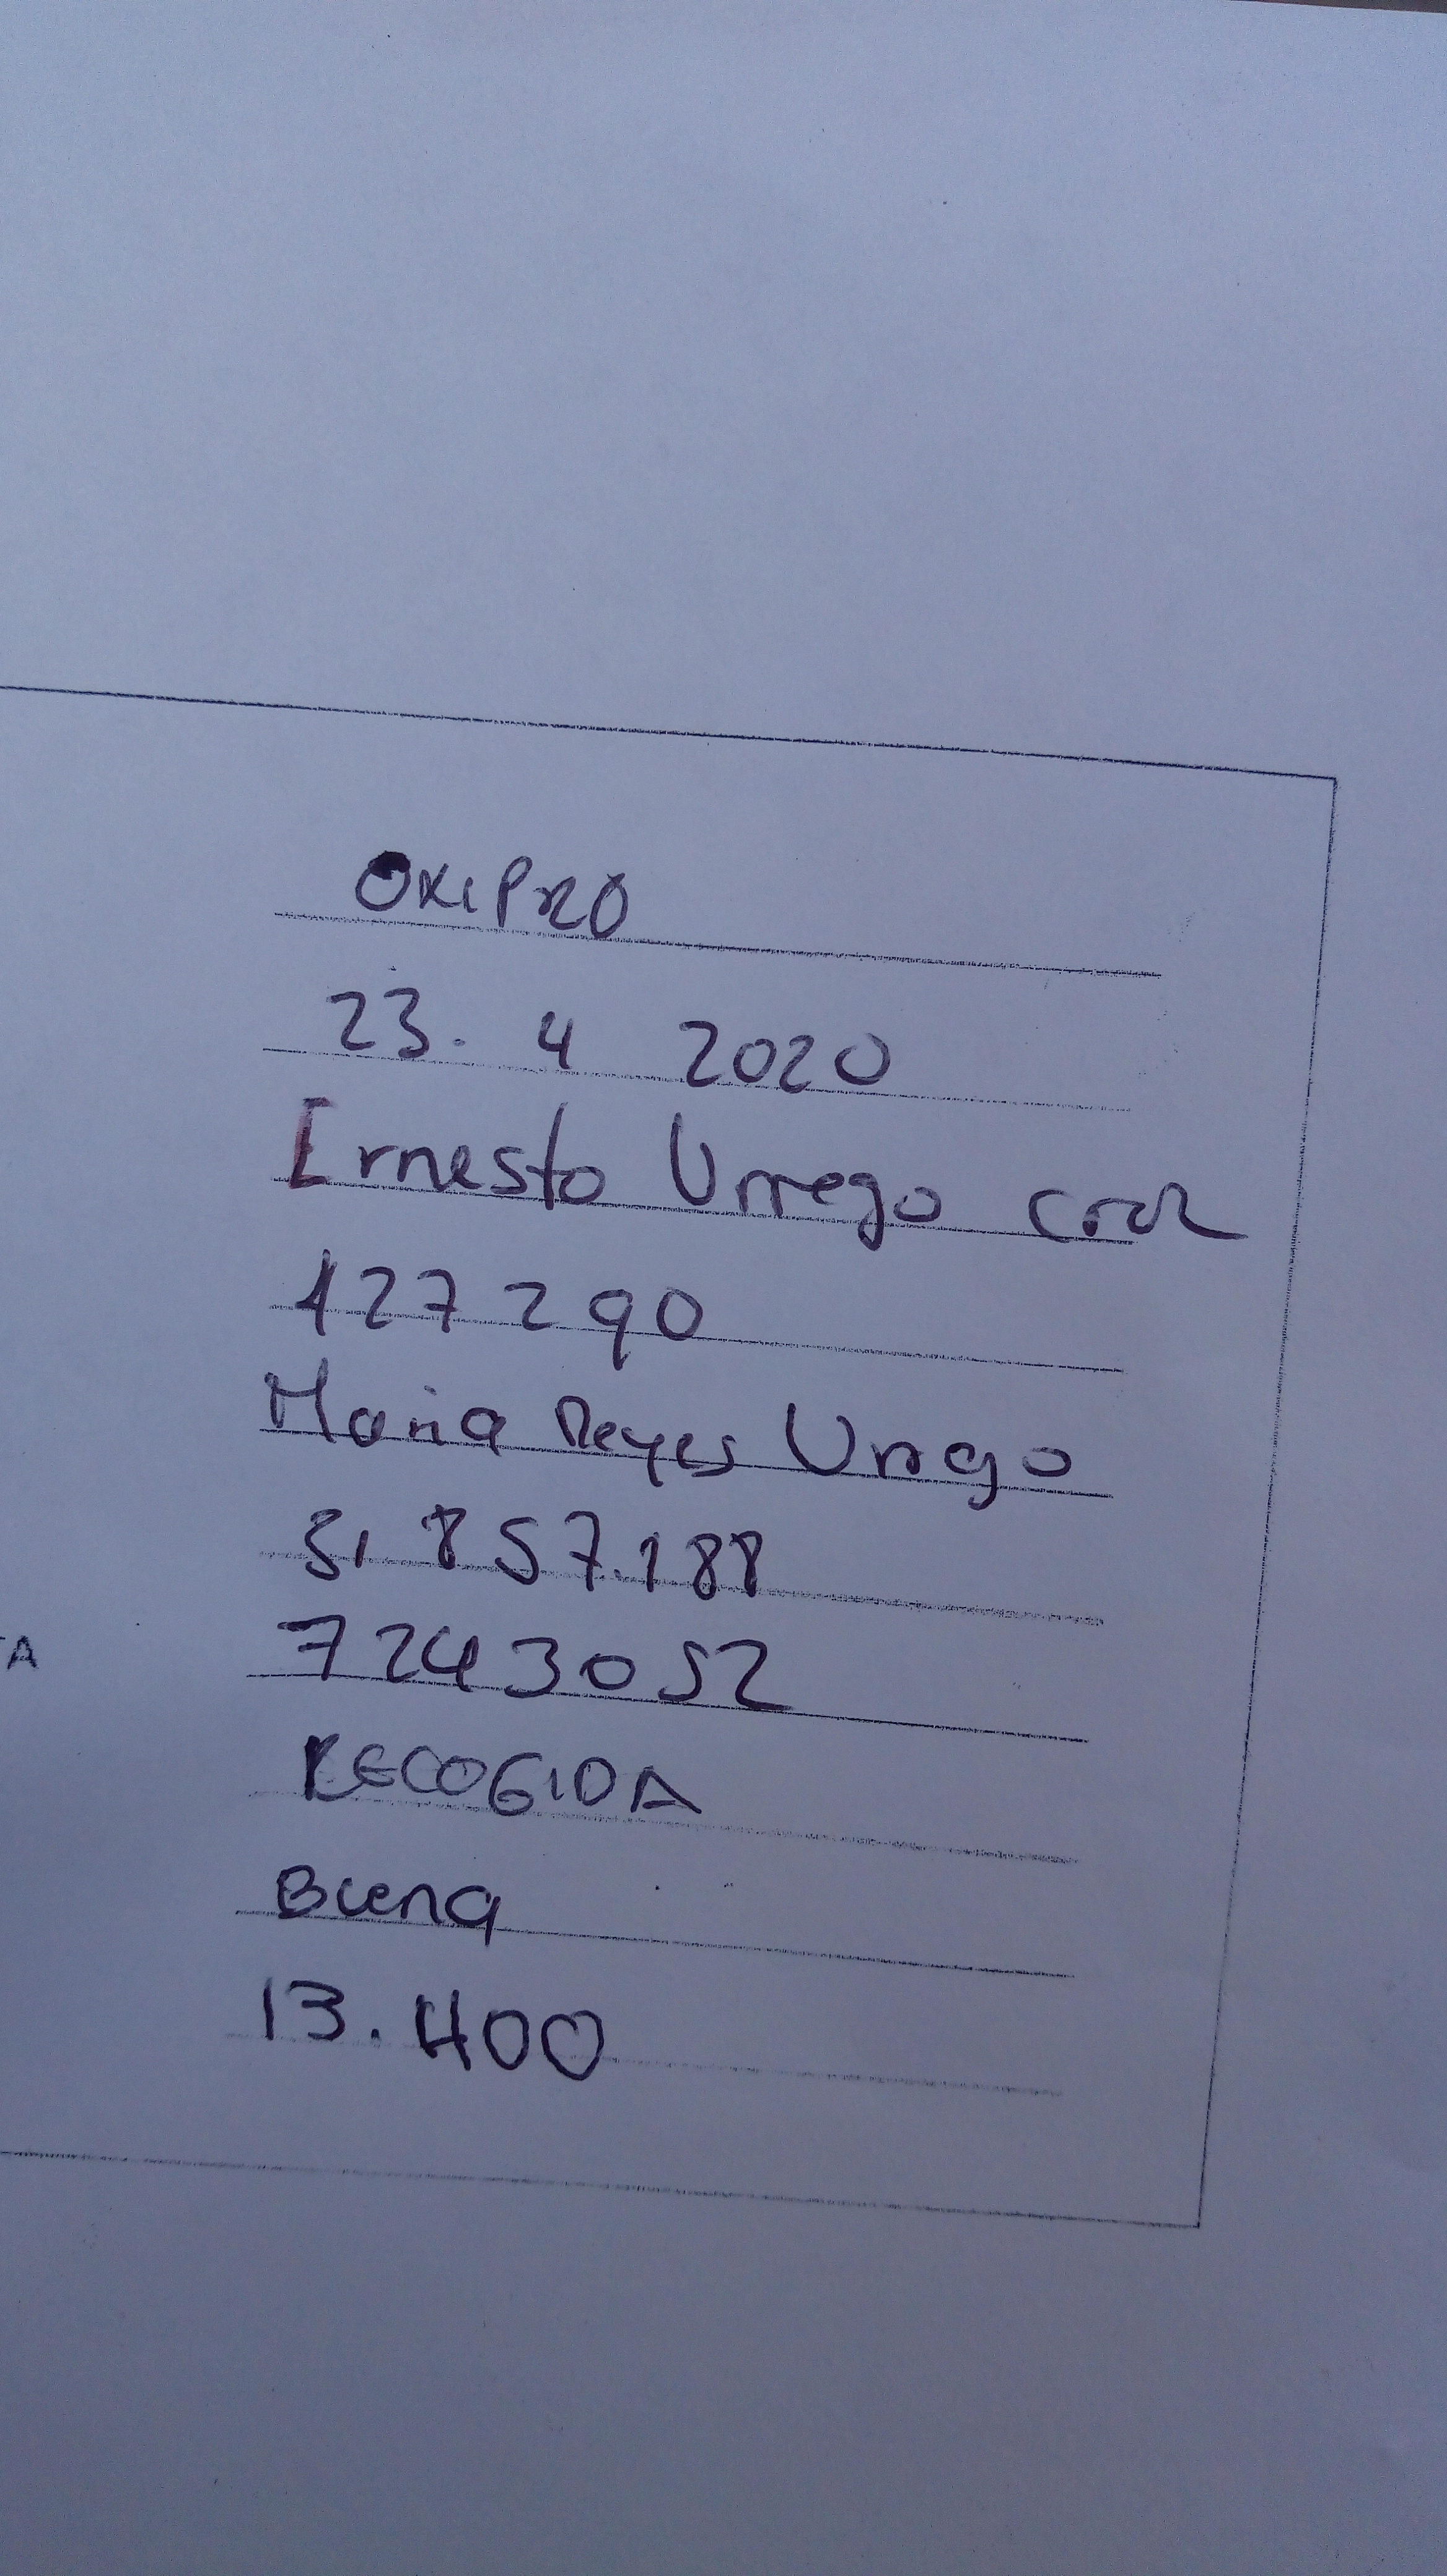 OXIPRO
23. 4 2020
Ernesto Urrego
127290
Maria Reyes Urrego
51.857.188
TA 7243052
RECOGIDA
Buena
13.400